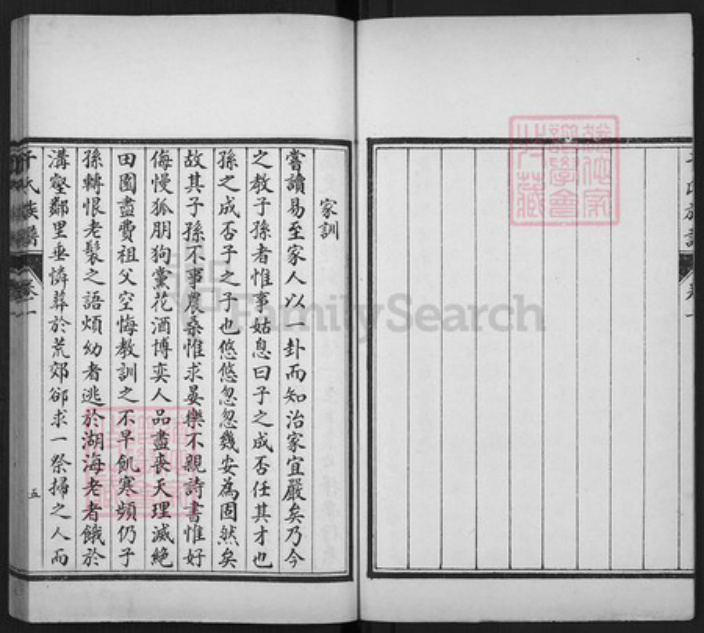 家訓
嘗讀易至家人以一卦而知治家宜嚴矣乃今
之教子孫者惟事姑息曰子之成否任其才也
孫之成否子之子也悠悠忽忽幾安為固然矣
故其子孫不事農桑惟求宴樂不親詩書惟好
侮慢狐朋狗黨花酒博奕人品盡喪天理滅絕
田園盡費祖父空悔教訓之不早飢寒頻仍子
孫轉恨老髮之語煩幼者逃於湖海老者餓於
溝壑鄰里垂憐葬於荒郊卻求一祭掃之人而
于氏族譜
卷一
五
于氏族譜
卷一
FamilySearch